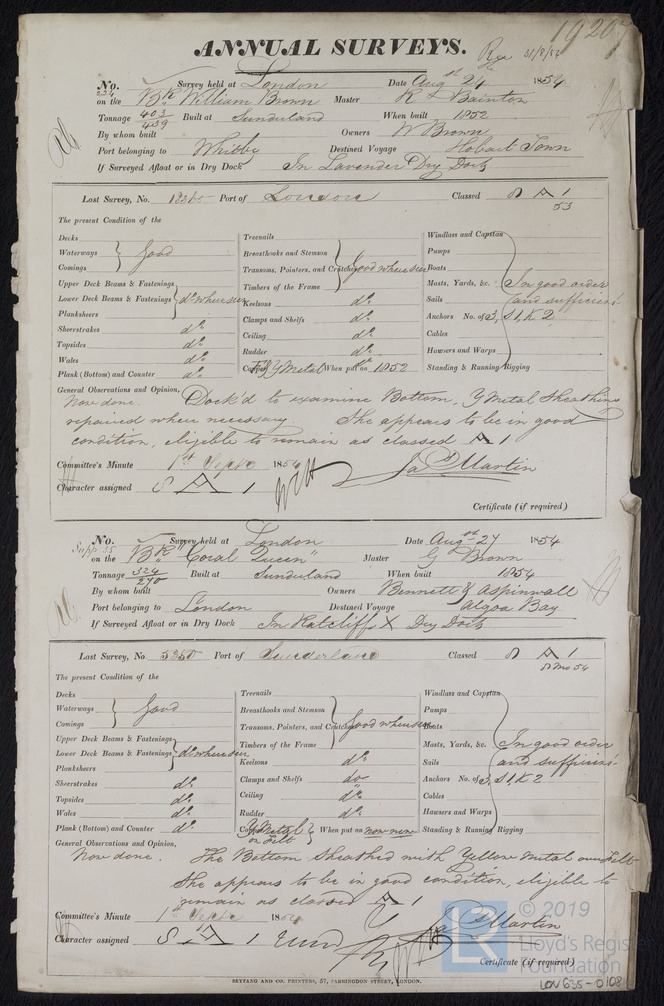 1920
ANNUAL SURVEYS.
31/8/54
No. 224 Survey held at London Date Augst 24 1854
on the Bk William Brown Master R Bainton
Tonnage 403/439 Built at Sunderland When built 1852
By whom built Owners W Brown
Port belonging to Whitby Destined Voyage Hobart Town
If Surveyed Afloat or in Dry Dock In Lavender Dry Dock
Last Survey, No. Port of London Classed 8 A 1
53
The present Condition of the
Decks
Waterways Good
Comings
Upper Deck Beams & Fastenings
Lower Deck Beams & Fastenings do where seen
Planksheers
Sheerstrakes do
Topsides do
Wales do
Plank (Bottom) and Counter do
Treenails
Breasthooks and Stemson
Transoms, Pointers, and Crutches Good where seen
Timbers of the Frame
Keelsons do
Clamps and Shelfs do
Ceiling do
Rudder do
Copper Y Metal When put on 1852
Windlass and Capstan
Pumps
Boats
Masts, Yards, &c. In good order
Sails and sufficient
Anchors No. of 3, S1, K2
Cables
Hawsers and Warps
Standing & Running Rigging
General Observations and Opinion,
Now done. Dock'd to examine Bottom, Y Metal Sheathing
repaired where necessary She appears to be in good
condition, eligible to remain as classed A 1
Committee's Minute 1st Septr 1854 Jas Martin
Character assigned 8 A 1
Certificate (if required)
No. Supp 35 Survey held at London Date Augst 27 1854
on the Bk "Coral Queen" Master G Brown
Tonnage 324/270 Built at Sunderland When built 1854
By whom built Owners Bennett & Aspinwall
Port belonging to London Destined Voyage Algoa Bay
If Surveyed Afloat or in Dry Dock In Ratcliffe X Dry Dock
Last Survey, No 5355 Port of Sunderland Classed 8 A 1
8 Mo 54
The present Condition of the
Decks
Waterways Good
Comings
Upper Deck Beams & Fastenings
Lower Deck Beams & Fastenings do where seen
Planksheers
Sheerstrakes do
Topsides do
Wales do
Plank (Bottom) and Counter do
Treenails
Breasthooks and Stemson
Transoms, Pointers, and Crutches Good where seen
Timbers of the Frame
Keelsons do
Clamps and Shelfs do
Ceiling do
Rudder do
Copper Y Metal on Felt When put on now new
Windlass and Capstan
Pumps
Boats
Masts, Yards, &c. In good order
Sails and sufficient
Anchors No. of 3, S1, K2
Cables
Hawsers and Warps
Standing & Running Rigging
General Observations and Opinion,
Now done. The Bottom sheathed with Yellow Metal over Felt
She appears to be in good condition, eligible to
remain as classed A 1
Committee's Minute 1st Septr 1854 Jas Martin
Character assigned 8 A 1
Certificate (if required)
SEYFANG AND CO. PRINTERS, 57, FARRINGDON STREET, LONDON.
© 2019
LR Lloyd's Register
Foundation
LON635-0108